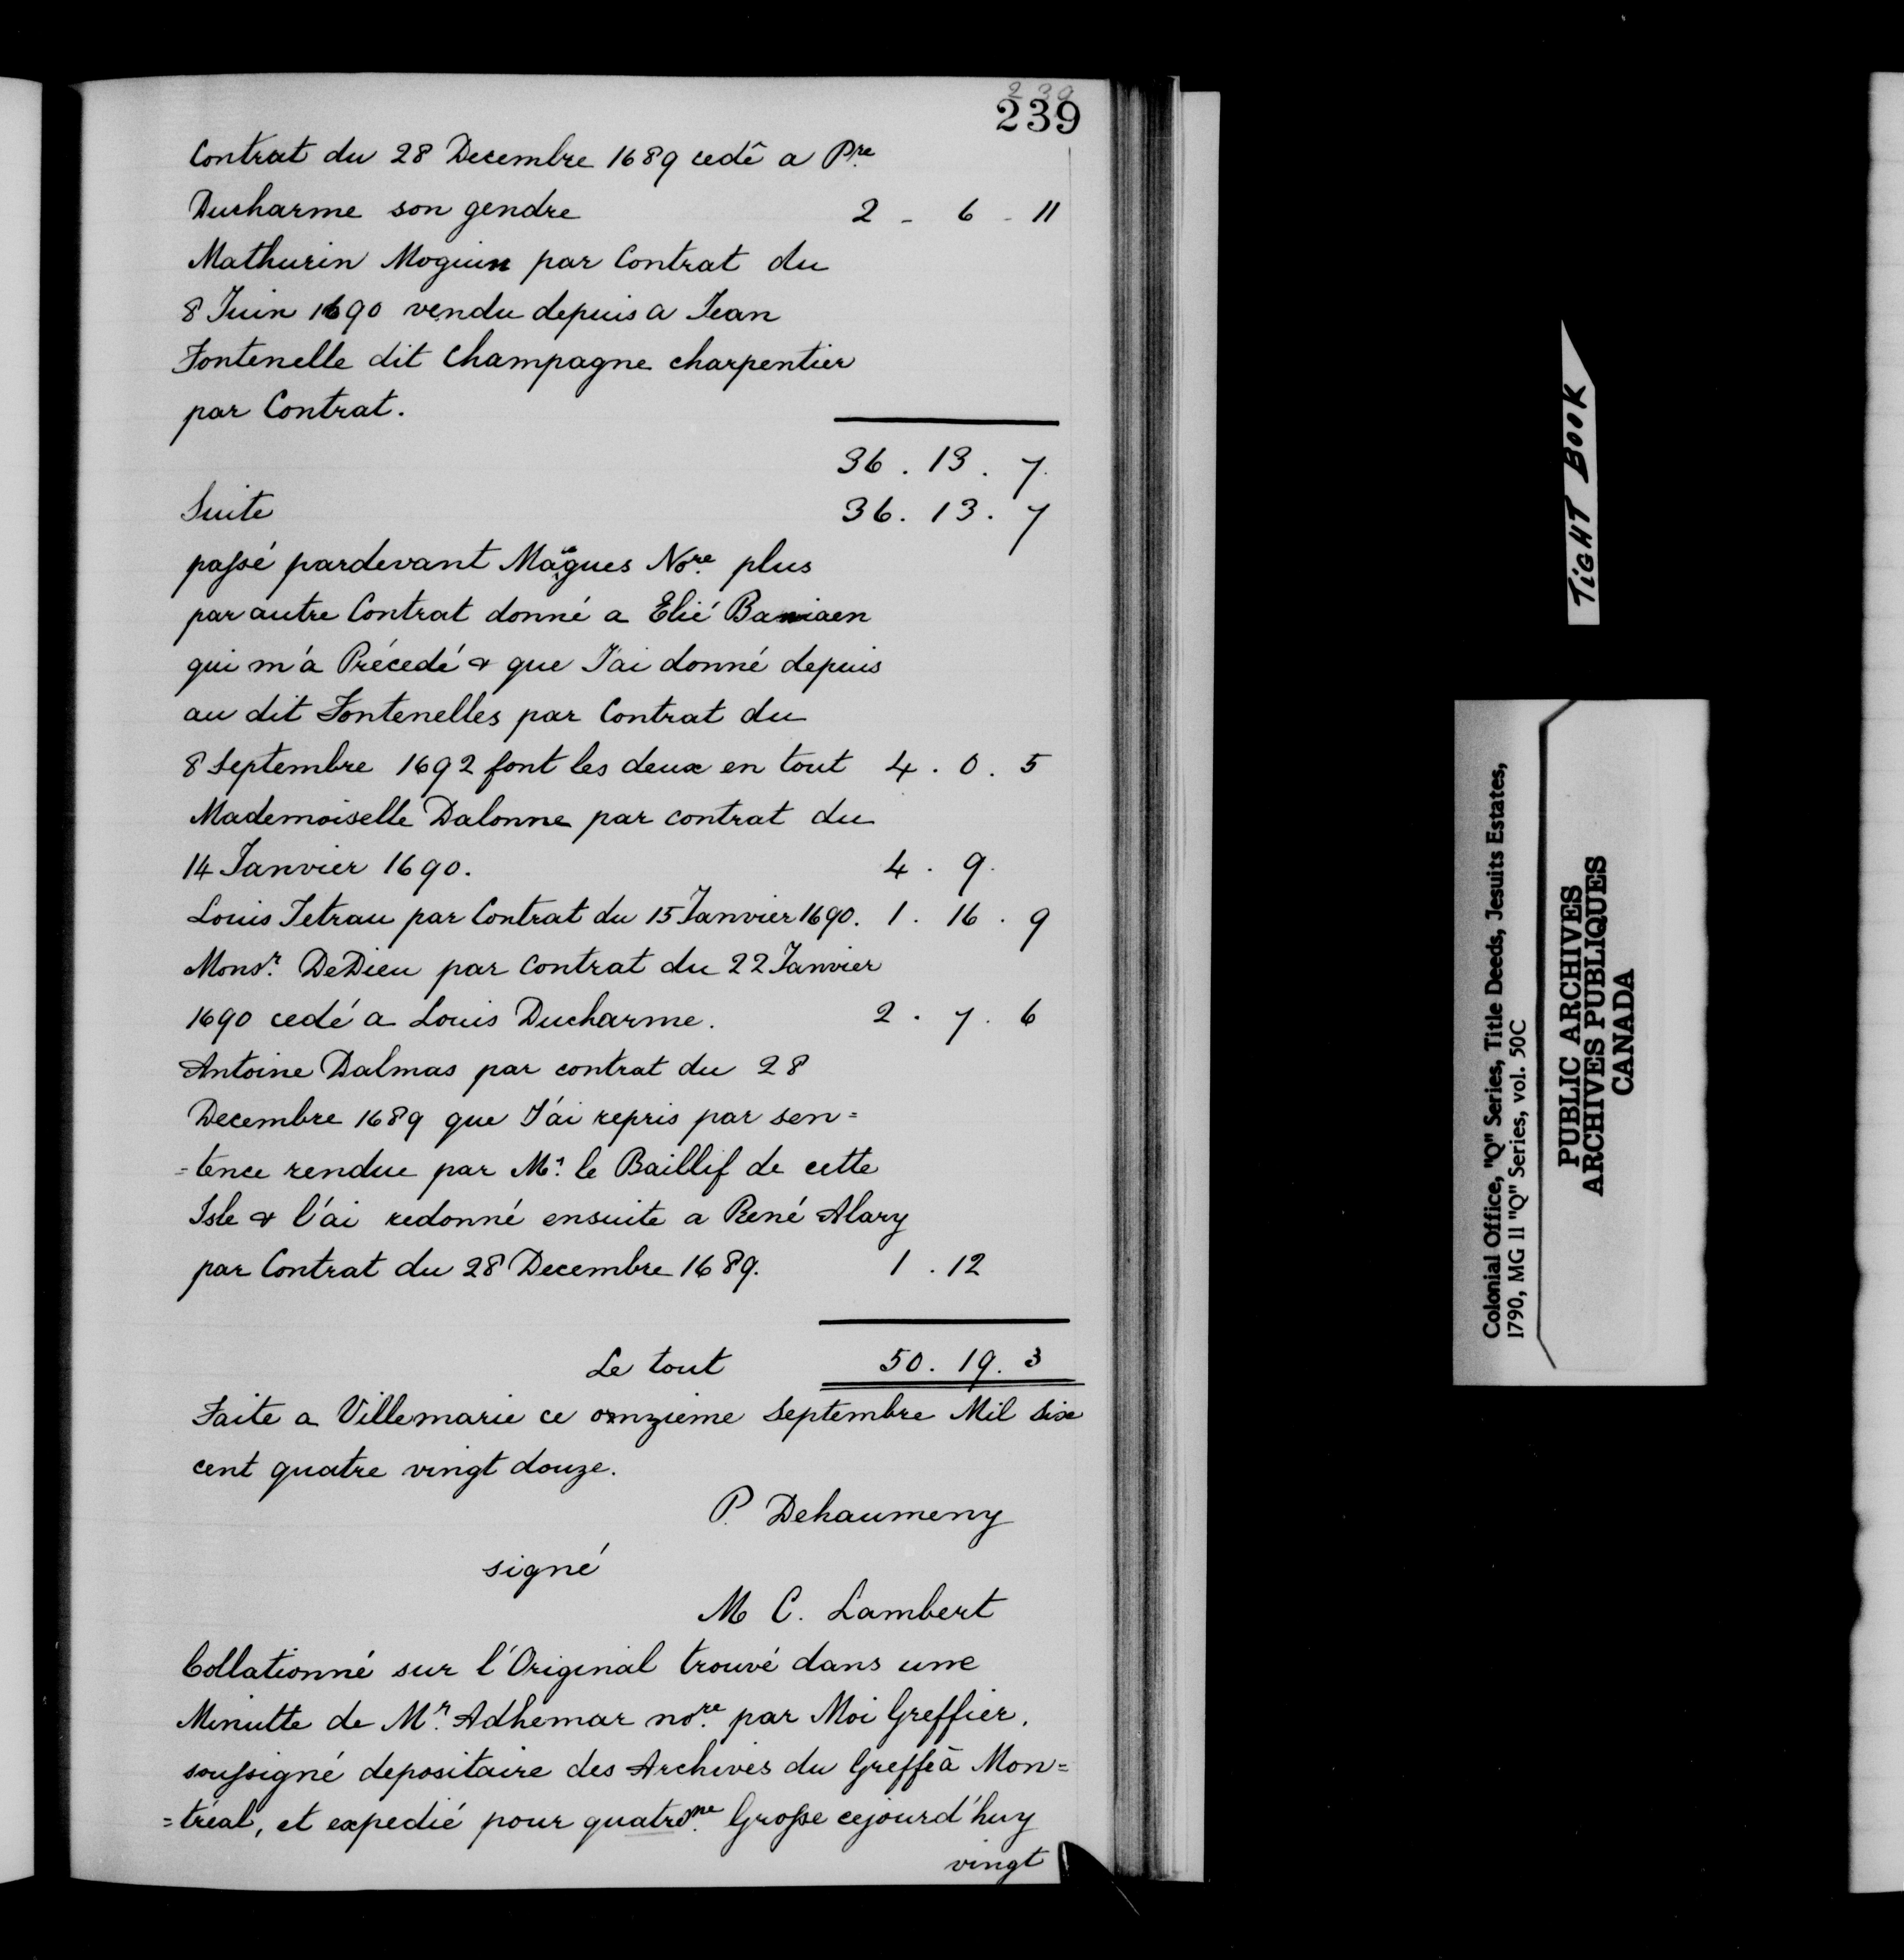 239
239
Contrat du 28 Decembre 1689 cedê a Pre
Ducharme son gendre 2 - 6 - 11
Mathurin Moguin par Contrat du
8 Juin 1690 vendu depuis a Jean
Fontenelle dit Champagne charpentier
par Contrat.
36 . 13 . 7.
Suite 36 . 13 . 7
passé pardevant Maugues Nore plus
par autre Contrat donné a Elié
qui m'a Précedé & que J'ai donné depuis
au dit Fontenelles par Contrat du
8 Septembre 1692 font les deux en tout 4 . 0 . 5
Mademoiselle Dalonne par contrat du
14 Janvier 1690. 4 . 9.
Louis Tetrau par Contrat du 15 Janvier 1690. 1 . 16 . 9
Monsr. DeDieu par Contrat du 22 Janvier
1690 cedé a Louis Ducharme. 2 . 7 . 6
Antoine Dalmas par contrat du 28
Decembre 1689 que J'ai repris par sen=
=tence rendue par Mr. le Baillif de cette
Isle & l'ai redonné ensuite a René Alary
par Contrat du 28 Decembre 1689. 1 . 12
Le tout 50 . 19 . 3
Faite a Villemarie ce onzieme Septembre Mil Six
cent quatre vingt douze.
P. Dehaumeny
signé
M C. Lambert
Collationné sur l'Original trouvé dans une
Minutte de Mr. Adhemar nore. par Moi Greffier,
soussigné depositaire des Archives du Greffe à Mon=
=tréal, et expedié pour quatre.me Grosse cejourd'huy
vingt
TiGHT BOOK
Colonial Office, "Q" Series, Title Deeds, Jesuits Estates,
1790, MG 11 "Q" Series, vol. 50C
PUBLIC ARCHIVES
ARCHIVES PUBLIQUES
CANADA